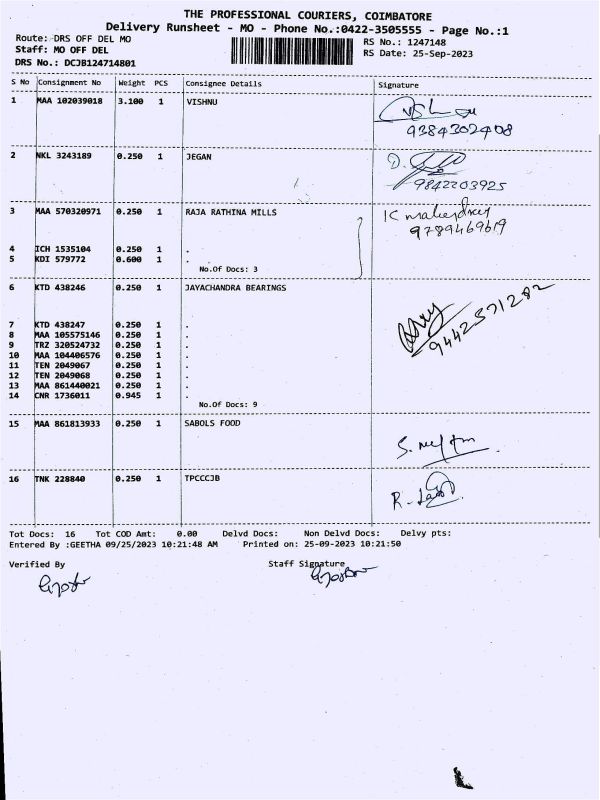 THE PROFESSIONAL COURIERS, COIMBATORE
Delivery Runsheet - MO - Phone No.:0422-3505555 - Page No.:1
Route: DRS OFF DEL MO
RS No.: 1247148
Staff: MO OFF DEL
RS Date: 25-Sep-2023
DRS No.: DCJB124714801
S No Consignment No Weight PCS Consignee Details Signature
1 MAA 102039018 3.100 1 VISHNU
9384302408
2 NKL 3243189 0.250 1 JEGAN
9842203925
3 MAA 570320971 0.250 1 RAJA RATHINA MILLS
9789469619
4 ICH 1535104 0.250 1 .
5 KDI 579772 0.600 1 .
No.Of Docs: 3
6 KTD 438246 0.250 1 JAYACHANDRA BEARINGS
9442571282
7 KTD 438247 0.250 1 .
8 MAA 105575146 0.250 1 .
9 TRZ 320524732 0.250 1 .
10 MAA 104406576 0.250 1 .
11 TEN 2049067 0.250 1 .
12 TEN 2049068 0.250 1 .
13 MAA 861440021 0.250 1 .
14 CNR 1736011 0.945 1 .
No.Of Docs: 9
15 MAA 861813933 0.250 1 SABOLS FOOD
16 TNK 228840 0.250 1 TPCCCJB
Tot Docs: 16 Tot COD Amt: 0.00 Delvd Docs: Non Delvd Docs: Delvy pts:
Entered By :GEETHA 09/25/2023 10:21:48 AM Printed on: 25-09-2023 10:21:50
Verified By Staff Signature